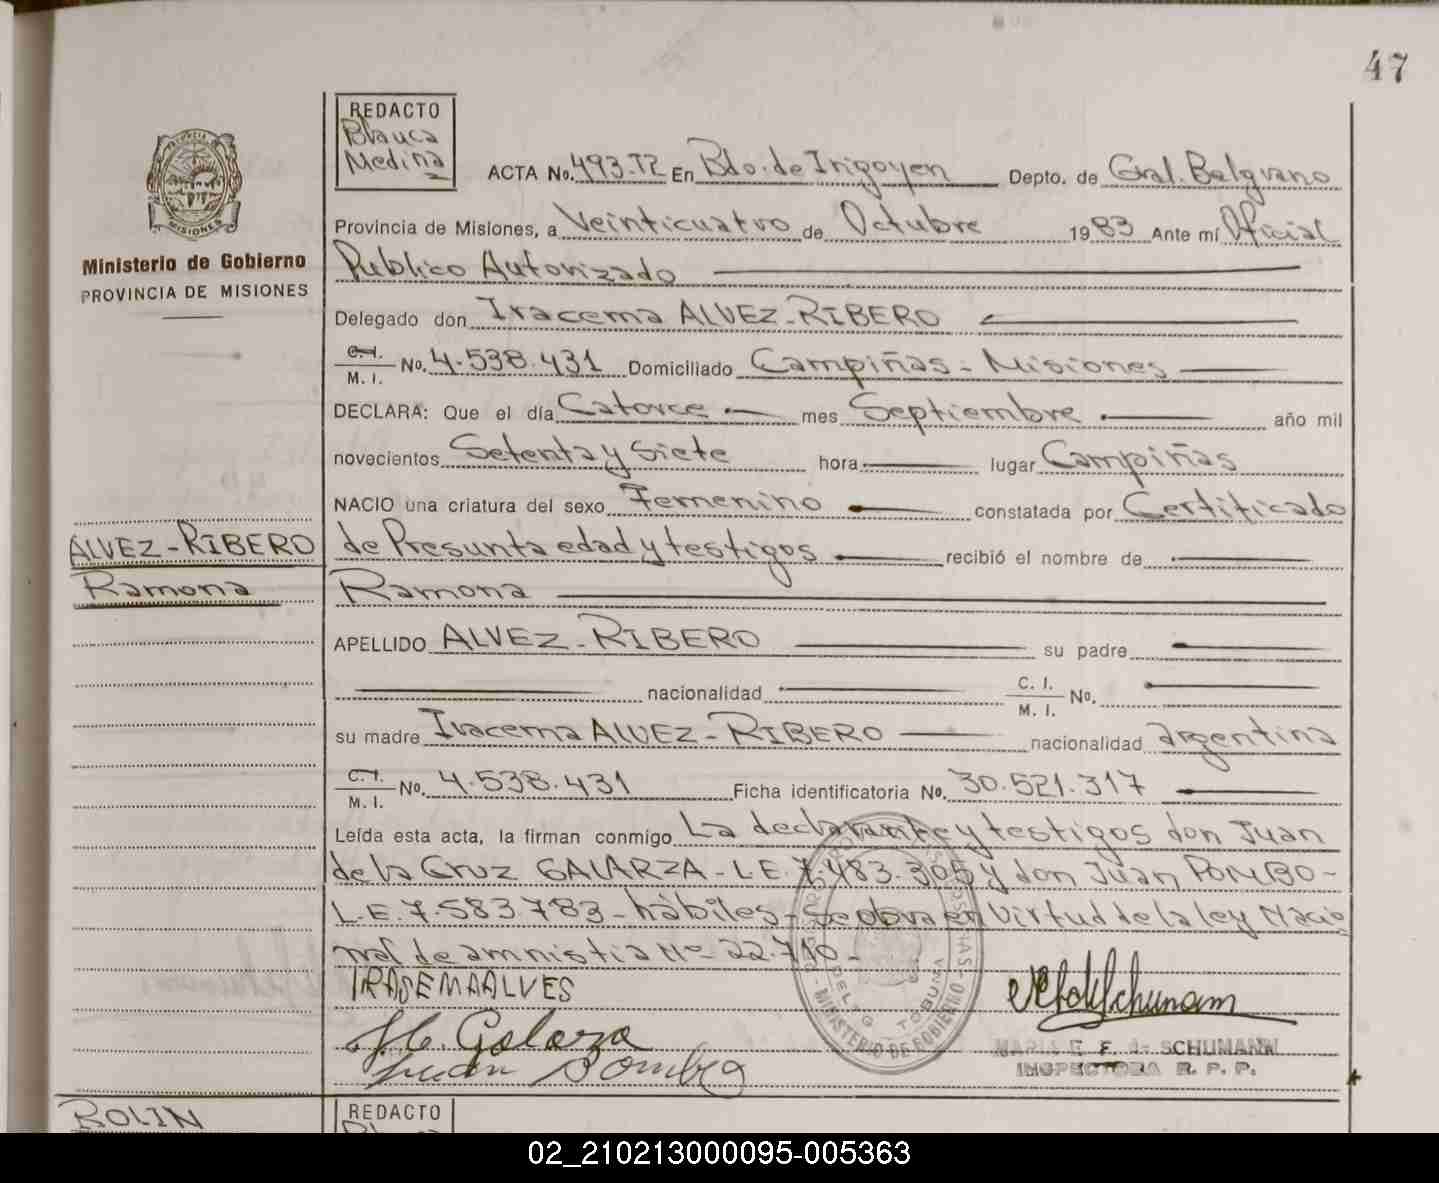 47
REDACTO
Blanca
Medina
ACTA No. 493.T2 En Bdo. de Irigoyen Depto. de Gral. Belgrano
Provincia de Misiones, a Veinticuatro de Octubre 1983 Ante mí Oficial
Publico Autorizado
Delegado don Iracema ALVEZ-RIBERO
C.I. M. I. No. 4.538.431 Domiciliado Campiñas - Misiones
DECLARA: Que el día Catorce mes Septiembre año mil
novecientos Setenta y Siete hora lugar Campiñas
NACIO una criatura del sexo Femenino constatada por Certificado
de Presunta edad y testigos recibió el nombre de
Ramona
APELLIDO ALVEZ-RIBERO su padre
nacionalidad C. I. M. I. No.
su madre Iracema ALVEZ-RIBERO nacionalidad argentina
C.I. M. I. No. 4.538.431 Ficha identificatoria No. 30.521.317
Leída esta acta, la firman conmigo La declarante y testigos don Juan
de la Cruz GALARZA - L.E. 7.483.305 y don Juan POMBO -
L.E. 7.583.783 - hàbiles - Se obra en Virtud de la ley Nacio
nal de amnistia Nº 22.710 -
IRASEMAALVES
J C. Galarza
Juan Pombo
MARIA E F. de SCHUMANN
INSPECTORA R. P. P.
MINISTERIO DE GOBIERNO
PROVINCIA DE
MISIONES
Ministerio de Gobierno
PROVINCIA DE MISIONES
ALVEZ-RIBERO
Ramona
ROLIN
REDACTO
02_210213000095-005363